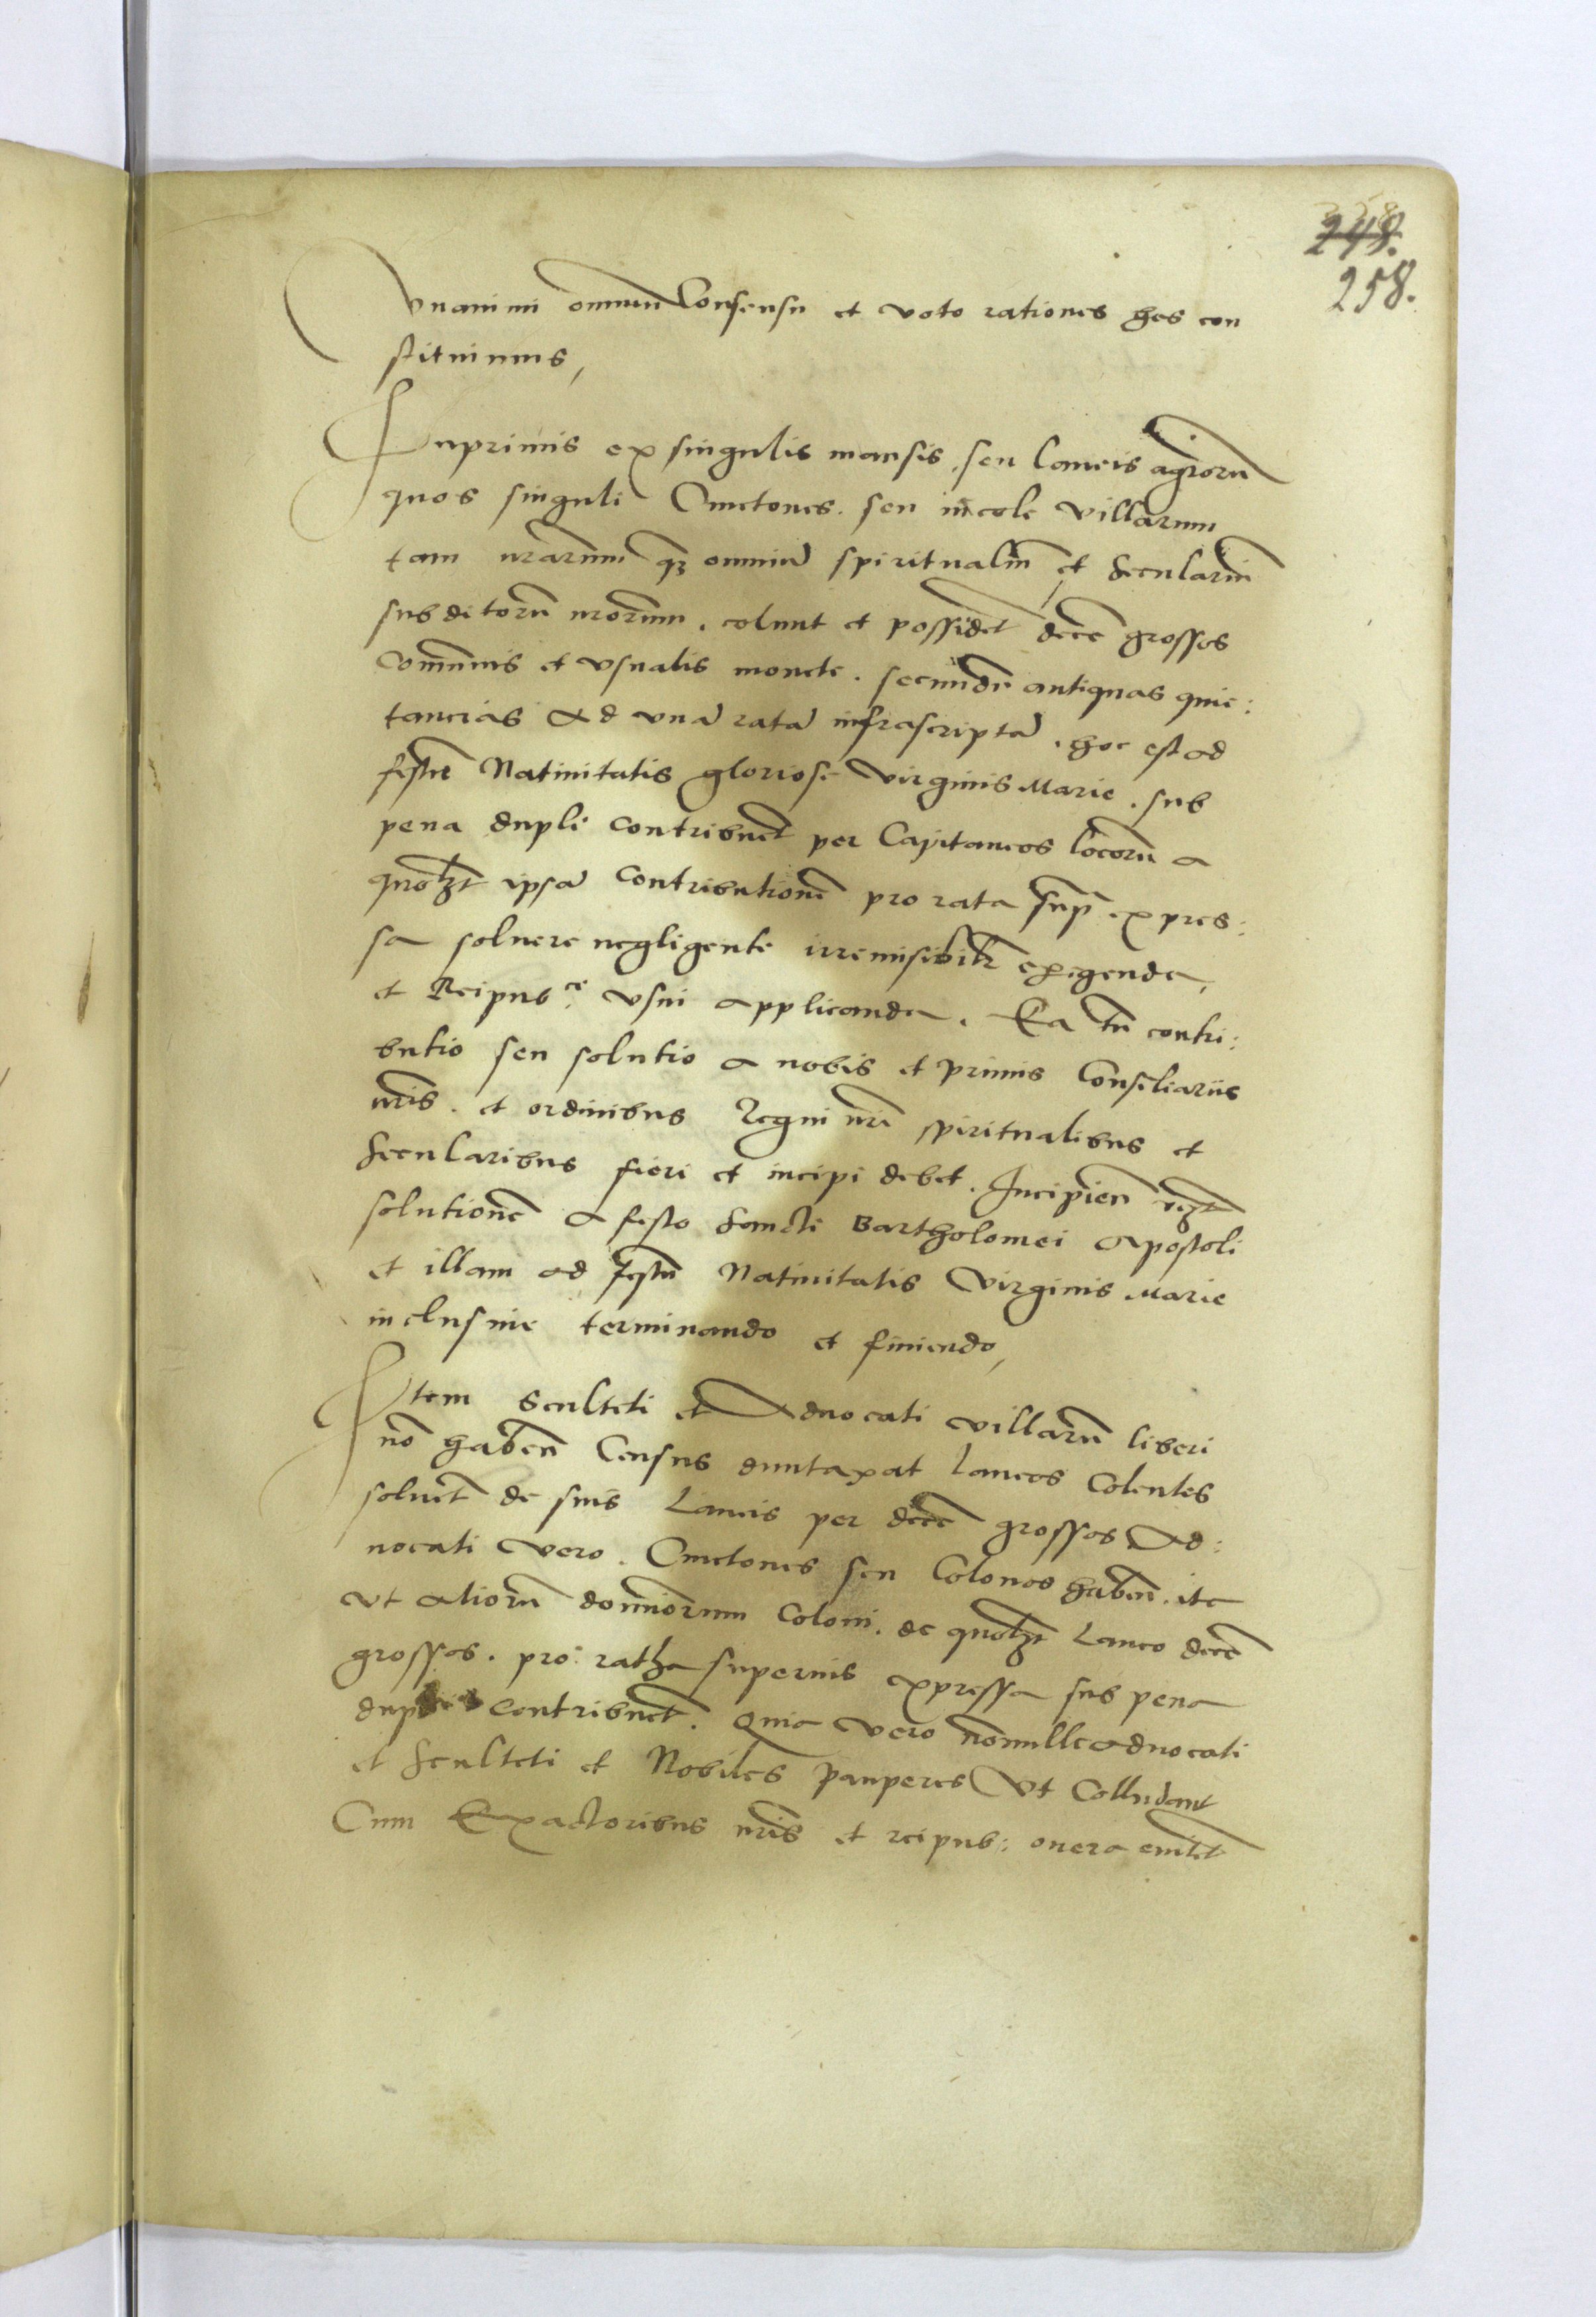 248.
258.
Vnanimi omniū Consensu et voto rationes has con
stituimus,
Inprimis ex singulis mansis, seu laneis agrorū
quos singuli Cmetones. seu incole villarum
tam nrārum qȝ omniū spiritualiū et Seculariū
subditorū nrōrum. colunt et possidēt decē grossos
Cōmunis et vsualis monete. secundū antiquas quie:
tancias Ad vnā ratā infrascriptā. hoc est ad
festū Natiuitatis gloriose Virginis Marie. sub
pena dupli Contribuēt per Capitaneos locorū a
quolȝt ipsā Contributionē pro rata sup̄ expres:
sa soluere negligente irremisibilr̄ exigenda,
et Reipubce. vsui applicanda. Ea tn̄ contri:
butio seu solutio a nobis et primis Consiliariis
nrīs. et ordinibus Regni nrī spiritualibus et
Secularibus fieri et incipi debet. Incipien
solutionē A festo Sancti Bartholomei Apostoli
et illam ad festū Natiuitatis Virginis Marie
inclusiue terminando et finiendo,
Item Sculteti et Aduocati villarū liberi
nō habeñ Census duntaxat laneos Colentes
soluēt de suis Laneis per decē grossos Ad:
uocati vero. Cmetones seu Colonos habeñ. ita
vt aliorū dominōrum Coloni. de quolȝt Laneo decē
grossos. pro ratha superius expressa sub pena
contribuēt. Quia vero nōnulli aduocati
et Sculteti et Nobiles pauperes Vt Colludant
Cum Exactoribus nrīs et reipub: onera euitēt